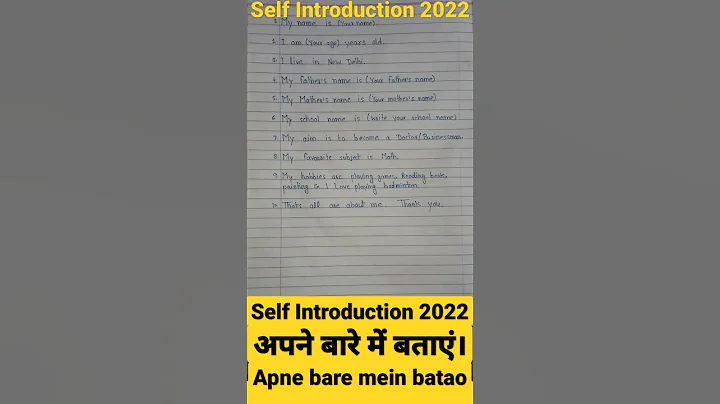 Self Introduction 2022
1. My name is (Your name).
2. I am (Your age) years old.
3. I live in New Delhi.
4. My father's name is (Your father's name)
5. My Mother's name is (Your mother's name)
6. My school name is (Write your school name)
7. My aim is to become a Doctor/Businessman.
8. My favourite subject is Math.
9. My hobbies are playing games, Reading book,
painting & I Love playing badminton.
10. Thats all are about me. Thank you.
Self Introduction 2022
अपने बारे में बताएं।
Apne bare mein batao